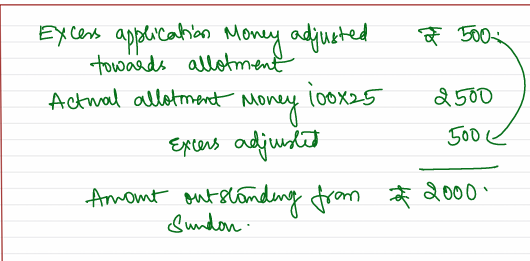 Excess application Money adjusted ₹ 500.
towards allotment
Actual allotment Money 100x25 2500
Excess adjusted 500
Amount outstanding from ₹ 2000.
Sundon.